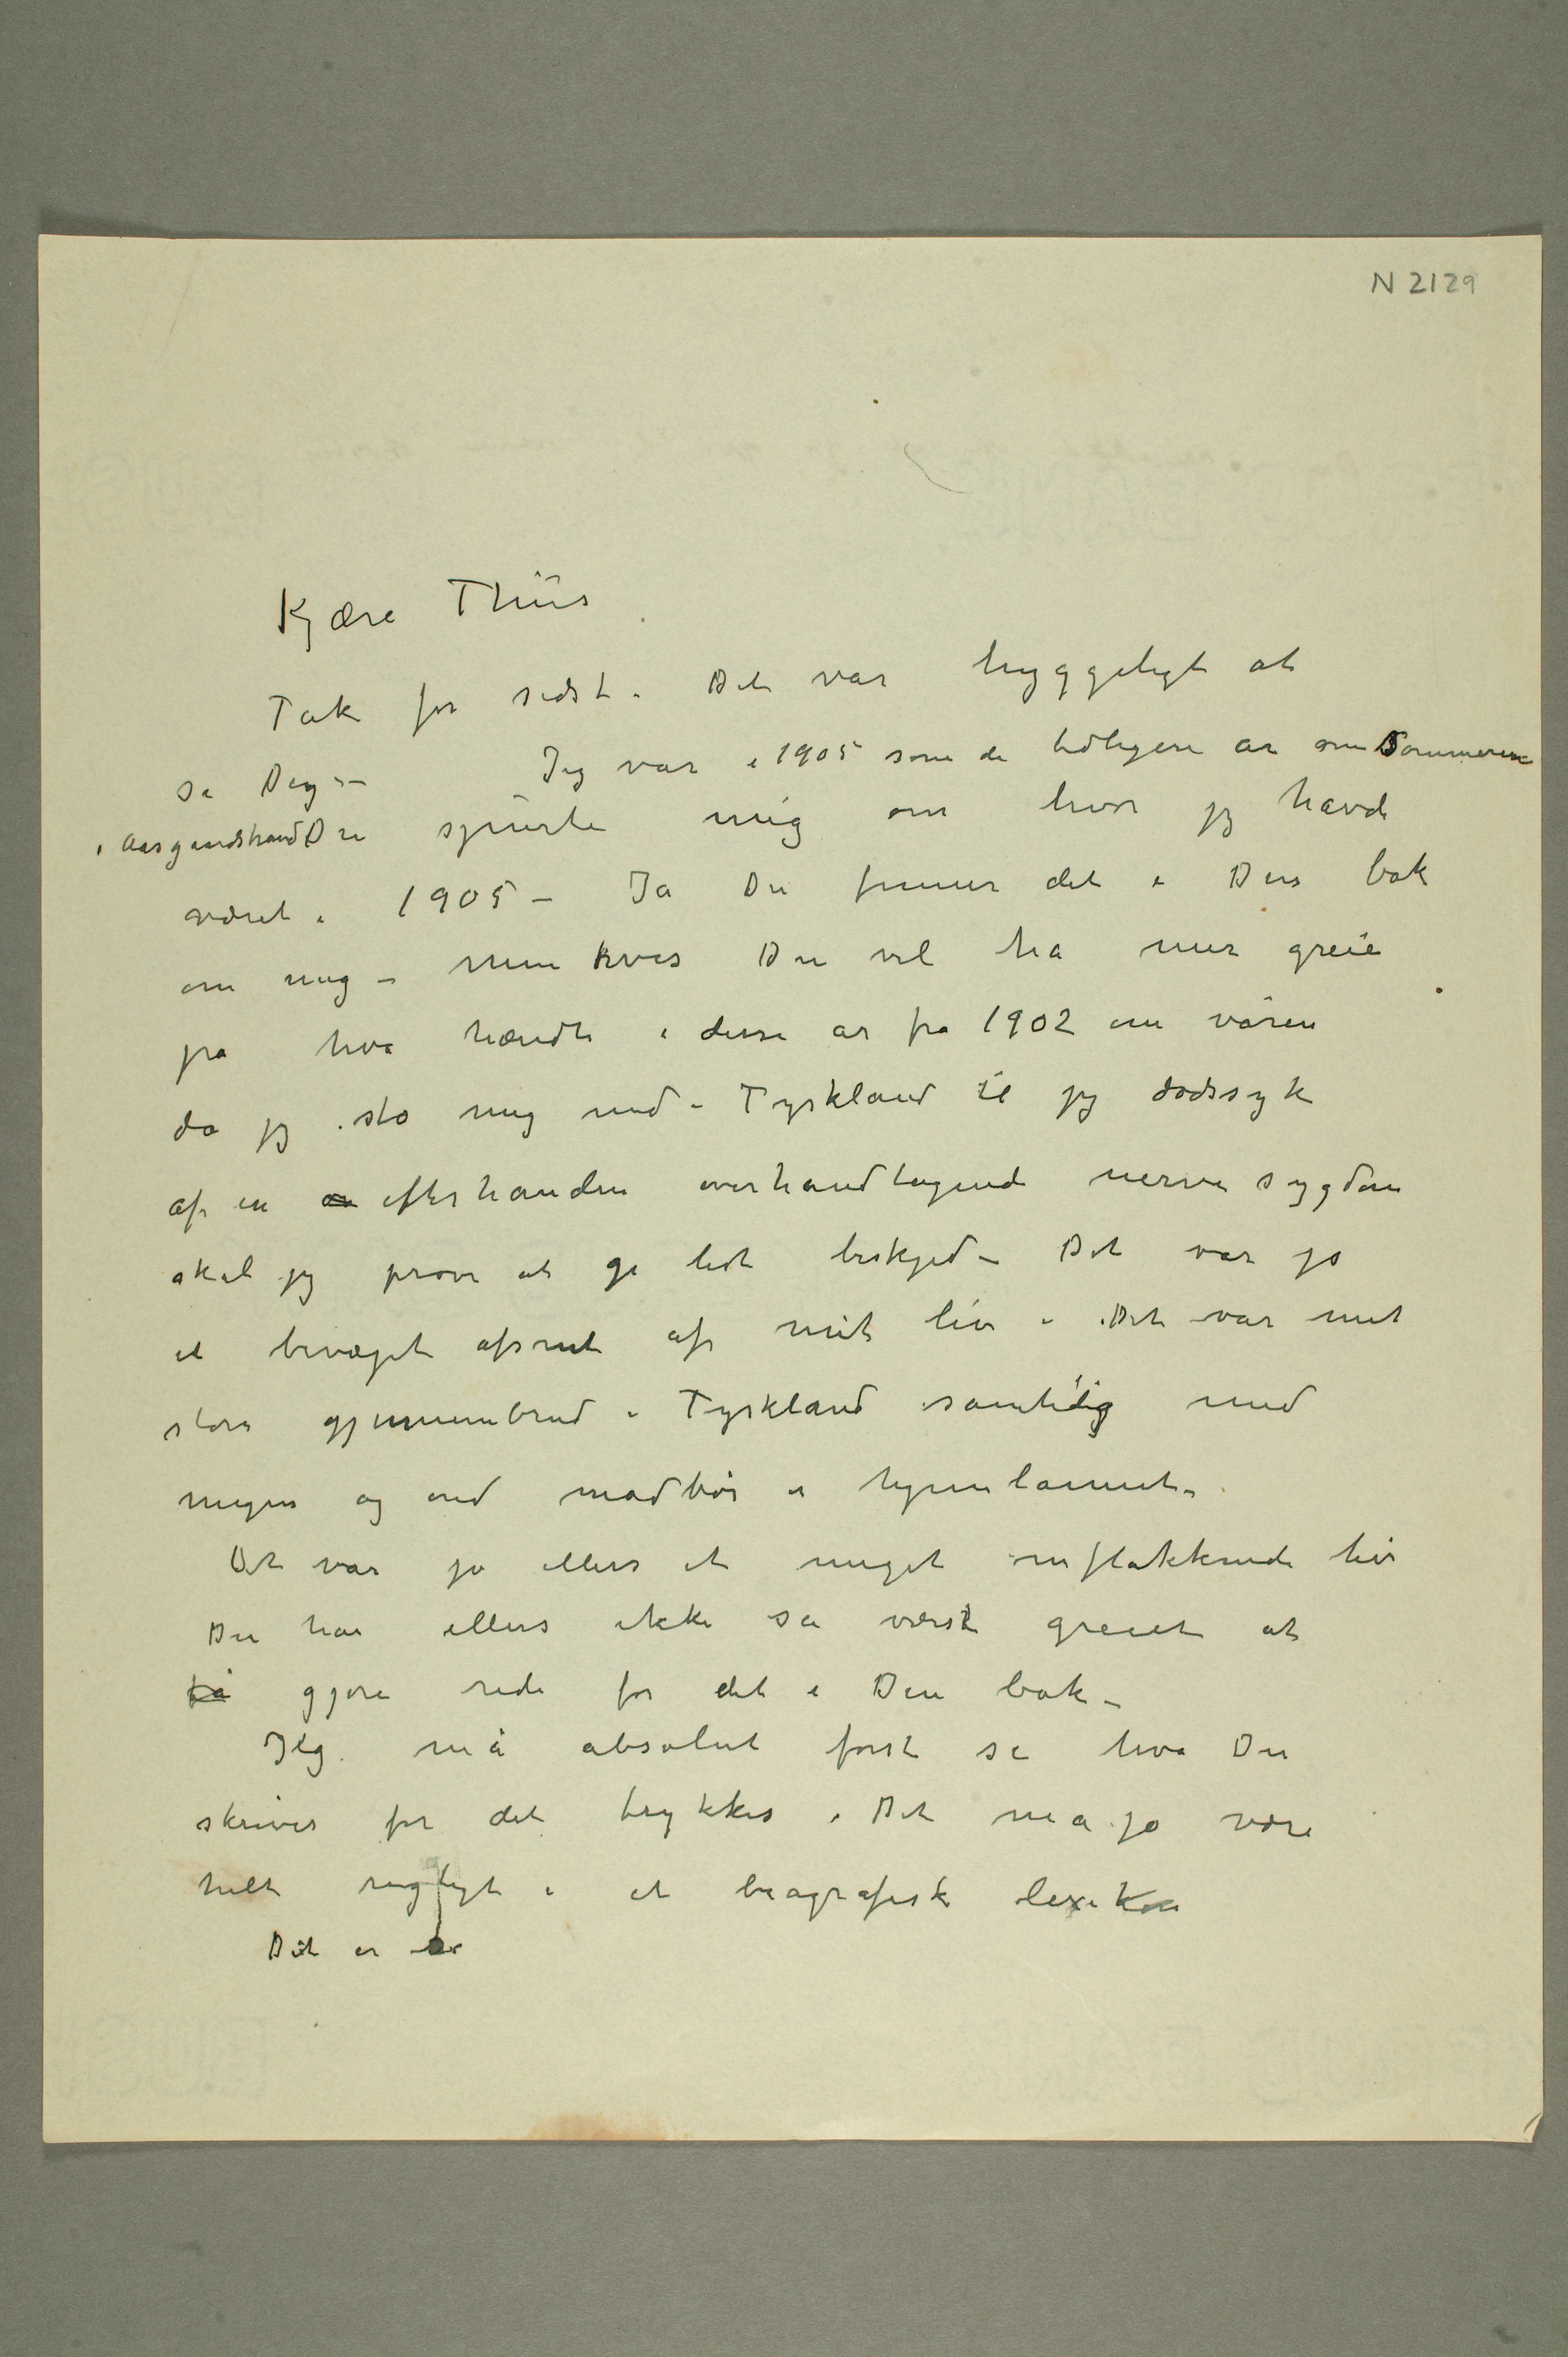 N 2129
Kjære Thiis
Tak for sidst. Det var hyggeligt at
se Dig –
Jeg var i 1905 som de tidligere år om Sommeren
i Aasgaardstrand Du spurte mig om hvor jg havde
været i 1905 – Ja Du finner det i Din bok
om mig – men hvis Du vil ha mer greie
på hva hændte i disse år fra 1902 om våren
da jg slo mig ned i Tyskland til jg dødssyk
af en efterhanden overhandtagende nervesygdom
skal jg prøve at gi lidt beskjed – Det var jo
et bevæget afsnit af mit liv – Det var mit
store gjennembrud i Tyskland samtidig med
megen og ond modbør i hjemlannet.
Det var jo ellers et meget omflakkende liv
Du har ellers ikke så værst greiet at
få gjøre rede for det i Din bok –
Jeg må absolut først se hva Du
skriver før det trykkes. Det må jo være
helt rigtigt i et biografisk lexikon
Det er